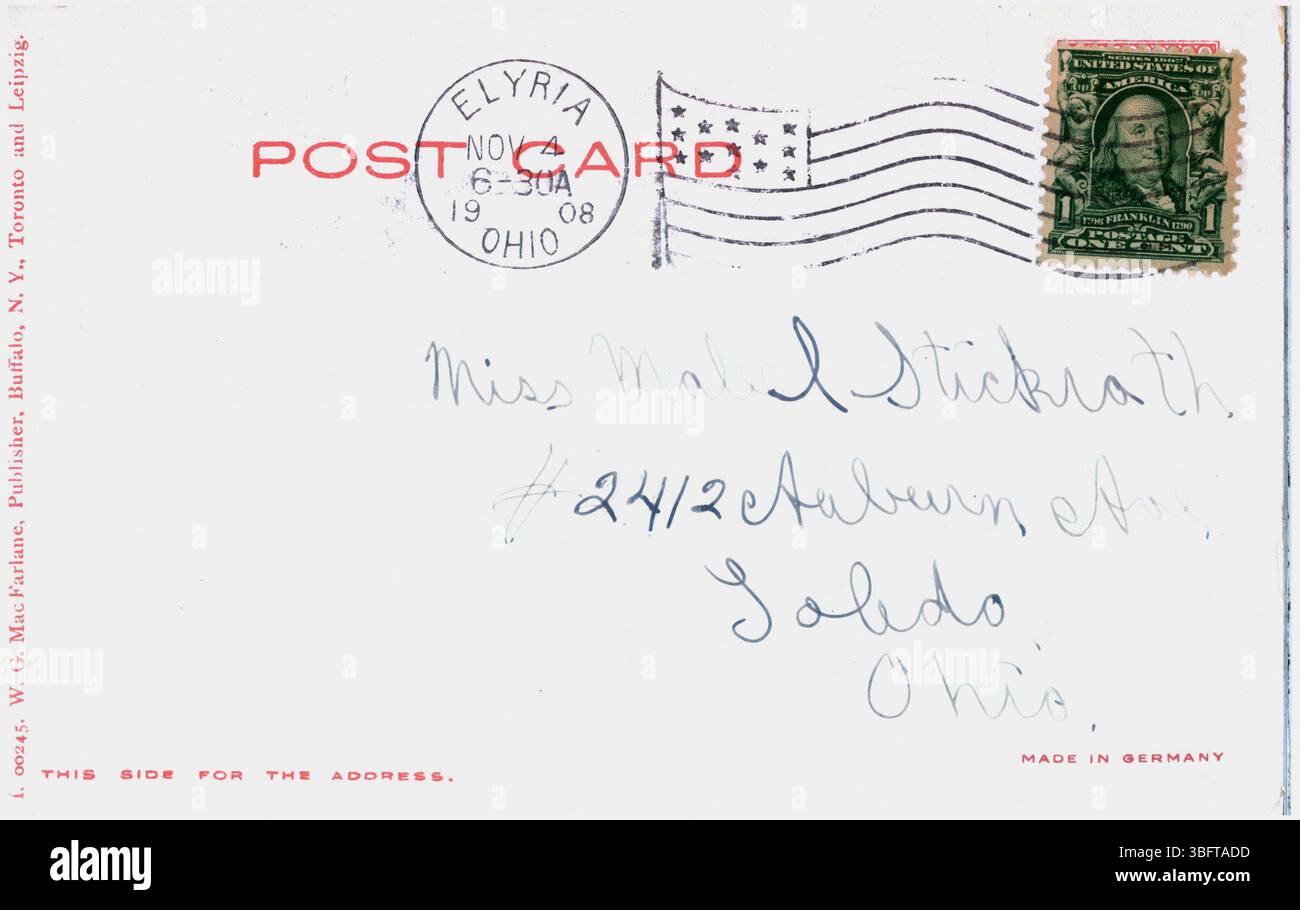 POST CARD
ELYRIA
NOV 4
6-30A
19 08
OHIO
SERIES 1902
UNITED STATES OF
AMERICA
1706 FRANKLIN 1790
1 1
POSTAGE
ONE CENT
Miss Mabel Stickrath
# 2412 Auburn Ave
Toledo
Ohio.
MADE IN GERMANY
THIS SIDE FOR THE ADDRESS.
I. 00245. W. G. MacFarlane, Publisher, Buffalo, N. Y., Toronto and Leipzig.
alamy
a
alamy
Image ID: 3BFTADD
www.alamy.com